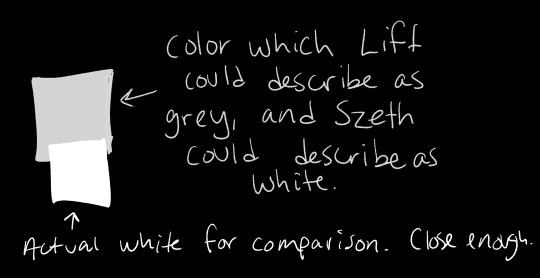 Color which Lift
could describe as
grey, and Szeth
could describe as
white.
Actual white for comparison. Close enough.